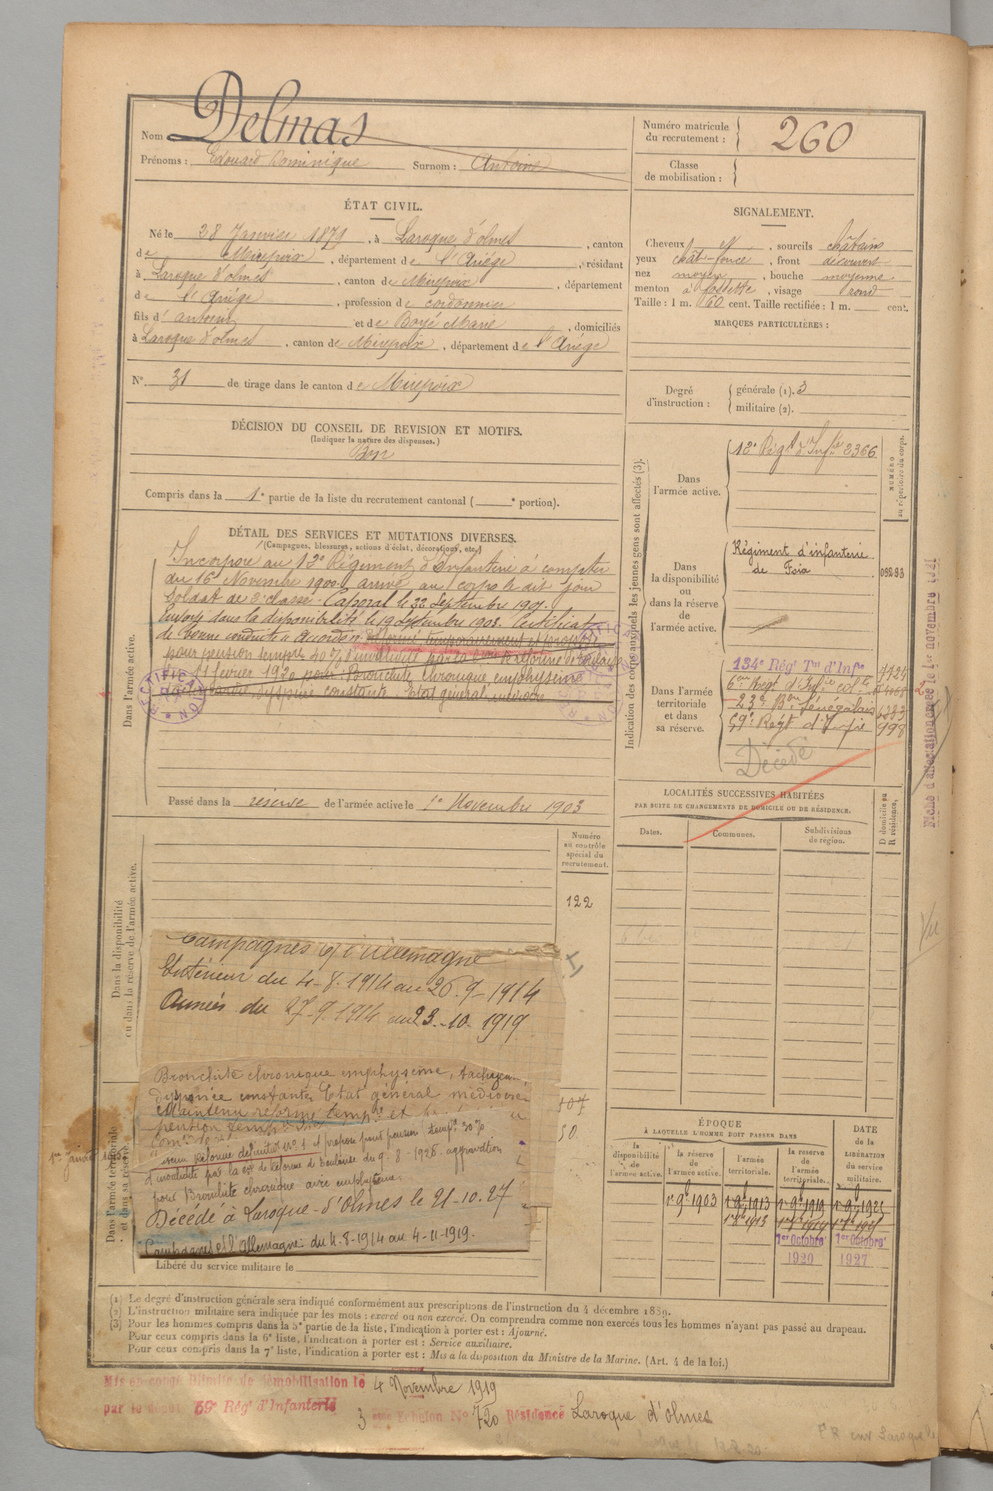 Nom Delmas
Prénoms : Edouard Dominique Surnom : Antoine
Numéro matricule du recrutement : 260
Classe de mobilisation :
ÉTAT CIVIL.
Né le 28 Janvier 1879, à Laroque d'olmes, canton
de Mirepoix, département de l'Ariège, résidant
à Laroque d'olmes, canton de Mirepoix, département
de l'Ariège, profession de cordonnier
fils d'antoine et de Boyé Marie, domiciliés
à Laroque d'olmes, canton de Mirepoix, département de l'Ariège
N° 31 de tirage dans le canton de Mirepoix
SIGNALEMENT.
Cheveux et, sourcils châtains
yeux chât-foncé, front découvert
nez moyen, bouche moyenne
menton à fossette, visage rond
Taille : 1 m. 60 cent. Taille rectifiée : 1 m. cent.
MARQUES PARTICULIÈRES :
Degré d'instruction : générale (1). 3
militaire (2).
DÉCISION DU CONSEIL DE REVISION ET MOTIFS.
(Indiquer la nature des dispenses.)
Bon
Compris dans la 1e partie de la liste du recrutement cantonal ( e portion).
DÉTAIL DES SERVICES ET MUTATIONS DIVERSES.
(Campagnes, blessures, actions d'éclat, décorations, etc.)
Dans l'armée active.
Incorporé au 12e Régiment d'Infanterie à compter
du 16 Novembre 1900. arrivé au corps le dit jour
Soldat de 2e classe. Caporal le 22 Septembre 1901.
Envoyé dans la disponibilité le 19 Septembre 1903. Certificat
de bonne conduite accordé. réformé temporairement et proposé
pour pension temp. 40 % d'invalidité par la de réforme de
11 février 1920 pour Bronchite chronique emphysème
dyspnée constante. Etat général médiocre
RECTIFICATION
RECTIFICATION
Passé dans la réserve de l'armée active le 1er Novembre 1903
Indication des corps auxquels les jeunes gens sont affectés (3).
NUMÉRO au répertoire du corps.
Dans l'armée active.
12e Régt d'Infie 2366
Dans la disponibilité ou dans la réserve de l'armée active.
Régiment d'infanterie
de Foix
Dans l'armée territoriale et dans sa réserve.
134e Régt Tal d'Infie
23e Bon Sénégalais 6283
59e Régt d'Infie 998
Décédé
Fiche d'affectation le 1er novembre
LOCALITÉS SUCCESSIVES HABITÉES
PAR SUITE DE CHANGEMENTS DE DOMICILE OU DE RÉSIDENCE.
Dates. Communes. Subdivisions de région. D domicile ou R résidence.
Dans la disponibilité ou dans la réserve de l'armée active.
Numéro au contrôle spécial du recrutement.
122
Campagnes c/ l'Allemagne
Intérieur du 4-8-1914 au 26-9-1914
Armées du 27-9-1914 au 23-10-1919
Dans l'armée territoriale et dans sa réserve.
Bronchite chronique emphysème,
dyspnée constante Etat général médiocre
Maintenu réformé temp. et
pension temp.
Réforme définitive N° 1 et propon pour pension temp. 30 %
d'invalidité par la con de réforme de Toulouse du 9-8-1926. aggravation
pour Bronchite chronique avec emphysème.
Décédé à Laroque-d'Olmes le 21-10-27
Campagnes c/ l'Allemagne du 4-8-1914 au 4-11-1919.
Libéré du service militaire le
ÉPOQUE
À LAQUELLE L'HOMME DOIT PASSER DANS
la disponibilité de l'armée active. la réserve de l'armée active. l'armée territoriale. la réserve de l'armée territoriale. DATE de la LIBÉRATION du service militaire.
1er 9bre 1903 1er 9bre 1913 1er 9bre 1919 1er 9bre 1925
1er Octobre 1er Octobre
1920 1927
(1) Le degré d'instruction générale sera indiqué conformément aux prescriptions de l'instruction du 4 décembre 1889.
(2) L'instruction militaire sera indiquée par les mots : exercé ou non exercé. On comprendra comme non exercés tous les hommes n'ayant pas passé au drapeau.
(3) Pour les hommes compris dans la 5e partie de la liste, l'indication à porter est : Ajourné.
Pour ceux compris dans la 6e liste, l'indication à porter est : Service auxiliaire.
Pour ceux compris dans la 7e liste, l'indication à porter est : Mis à la disposition du Ministre de la Marine. (Art. 4 de la loi.)
Mis en congé illimité de démobilisation le 4 Novembre 1919
par le dépôt 59e Régt d'Infanterie
3 eme Echelon No 720 Résidence Laroque d'olmes